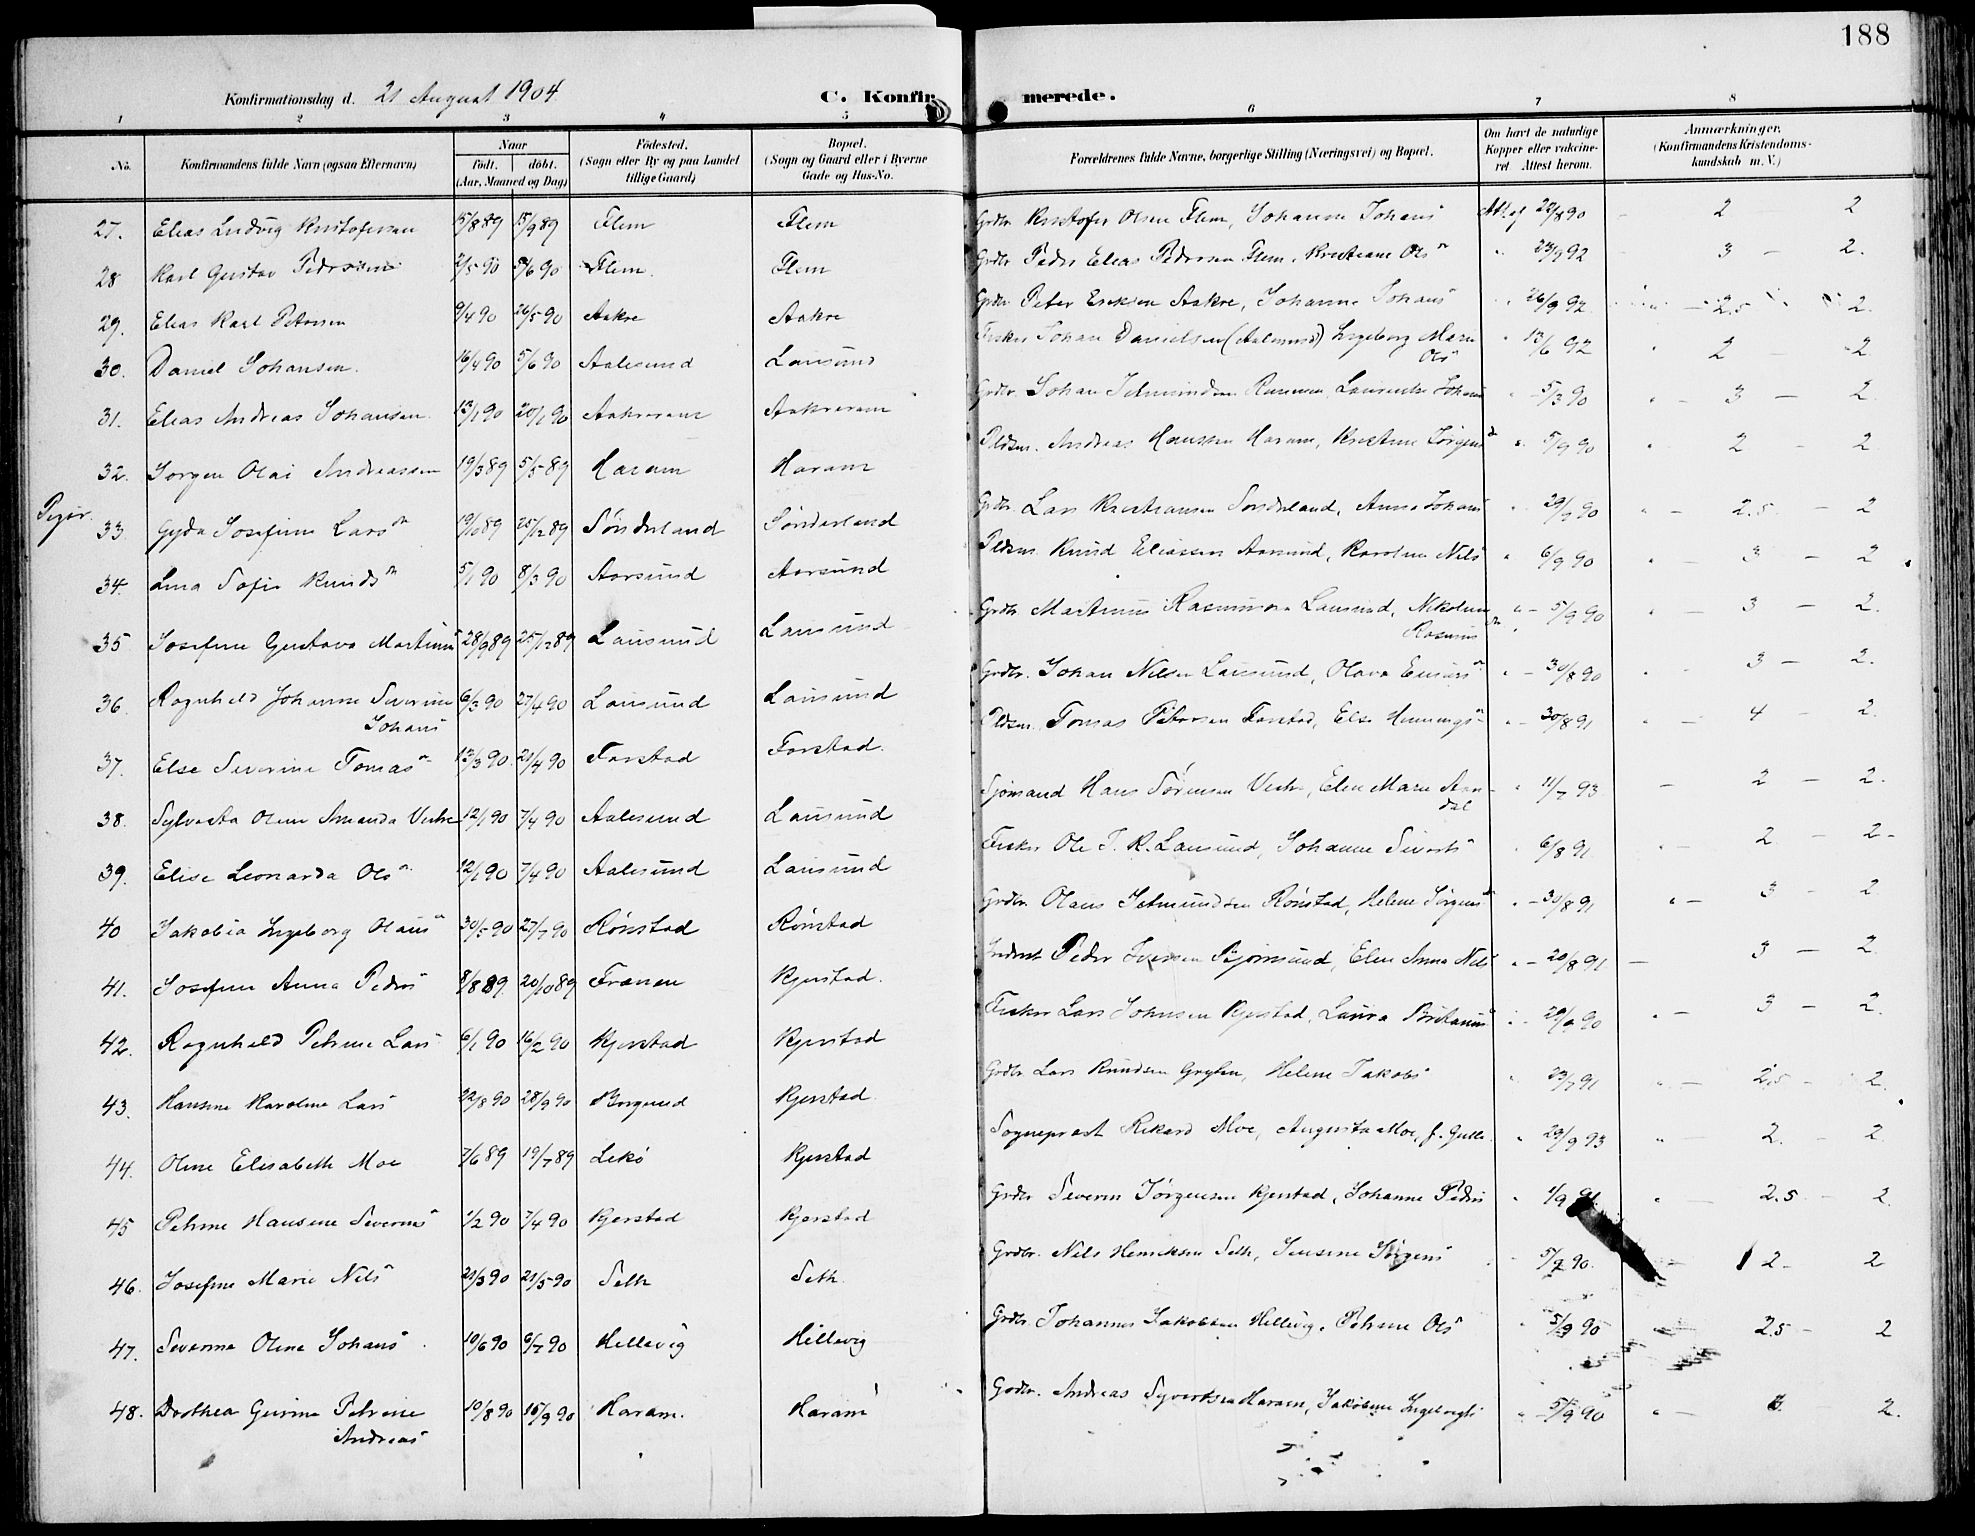 188
Konfirmationsdag d. 21 August 1904
C. Konfir merede.
1 2 3 4 5 6 7 8
No. Konfirmandens fulde Navn (ogsaa Efternavn) Naar født. døbt. (Aar, Maaned og Dag) Fødested. (Sogn eller By og paa Landet tillige Gaard) Bopæl. (Sogn og Gaard eller i Byerne Gade og Hus-No. Forældrenes fulde Navne, borgerlige Stilling (Næringsvei) og Bopæl. Om havt de naturlige Kopper eller vaccineret Attest herom. Anmærkninger. (Konfirmandens Kristendomskundskab m. V.)
27. Elias Ludvig Kristofersen 15/8 89 15/9 89 Flem Flem Grdbr. Kristofer Olsen Flem, Johanne Johans Att. af 22/8 90 2 2
28 Karl Gustav Pedersen 2/5 90 8/6 90 Flem. Flem Grdbr. Peder Elias Pedersen Flem, Kristiane Ols 23/9 92 3 – 2.
29. Elias Karl Petersen 9/4 90 26/5 90 Aakre Aakre Grdbr. Peter Eriksen Aakre, Johanne Johans 26/9 92 2.5 2.
30. Daniel Johansen. 16/4 90 5/6 90 Aalesund Lausund Fisker Johan Danielsen (Aalesund) Ingeborg Marie Ols 13/6 92 2 – 2
31. Elias Andreas Johansen 13/1 90 20/1 90 Aakreram Aakreram Grdbr. Johan Jetmundsen Ramnen, Laurentse Johans 5/3 90 3 – 2
32. Jørgen Olai Andreassen 19/3 89 5/5 89 Haram Haram Pldsm. Andreas Hanssen Haram, Kristine Jørgens 5/9 90 2 – 2
Piger.
33 Gyda Josefine Lars 19/10 89 25/12 89 Sønderland Sønderland Grdbr. Lars Kristiansen Sønderland, Anne Johans 29/9 90 2.5 – 2
34. Lina Sofie Knuds 5/1 90 8/3 90 Aarsund Aarsund Pldsm. Knud Eliassen Aarsund, Karoline Nils 6/9 90 3 – 2
35 Josefine Gustava Martinus 28/9 89 25/12 89 Lausund Lausund Grdbr. Martinus Rasmussen Lausund, Nikoline Rasmus 5/9 90 3 – 2.
36. Ragnhild Johanne Severine Johans 6/3 90 27/4 90 Lausund Lausund Grdbr. Johan Nilsen Lausund, Olava Einars 30/8 90 3 – 2.
37. Else Severine Tomas 13/3 90. 21/4 90 Farstad Farstad. Pldsm. Tomas Petersen Farstad, Else Hennings 30/8 91 4 – 2.
38. Sylvesta Oline Amanda Vestre 12/1 90 7/4 90 Aalesund Lausund Sjømand Hans Sørensen Vestre, Elen Marie Aandal 11/7 93 2 – 2.
39. Elise Leonarda Ols 12/1 90 7/4 90 Aalesund Lausund Fisker Ole J. R. Lausund, Johanne Siverts 6/8 91 2 – 2
40 Jakobia Ingeborg Olaus 30/5 90 27/7 90 Rønstad Rønstad Grdbr. Olaus Jetmundsen Rønstad, Helene Jørgens 30/8 91 3 – 2
41. Josefine Anna Peders 8/8 89 20/10 89 Frænen Kjerstad. Inderst Peder Iversen Bjørnsund, Elen Anna Nils 20/8 91 3 – 2
42. Ragnhild Petrine Lars 6/1 90 16/2 90 Kjerstad Kjerstad Fisker Lars Johnsen Kjerstad, Laura Britanus 29/9 90 3 – 2.
43. Hansine Karoline Lars 22/8 90 28/9 90 Borgund Kjerstad Grdbr. Lars Knudsen Gryten, Helene Jakobs 23/7 91 2.5 – 2.
44. Oline Elisabeth Moe 7/6 89 19/7 89 Lekø Kjerstad Sogneprest Rikard Moe, Augusta Moe, f. Gulls. 29/9 93 2. – 2
45 Petrine Hansine Severins 1/2 90 7/4 90 Kjerstad Kjerstad Grdbr. Severin Jørgensen Kjerstad, Johanne Peders 1/9 91 2.5 – 2
46. Josefine Marie Nils 21/3 90 21/5 90 Seth Seth Grdbr. Nils Henriksen Seth, Jensine Jørgens 5/9 90. 2 – 2
47. Severine Oline Johans 10/6 90 6/7 90 Hellevig Hillevig Grdbr. Johannes Jakobsen Hillevig, Petrine Ols 5/9 90 2.5 – 2
48. Dorthea Gurine Petrine Andreas 10/8 90 15/9 90 Haram. Haram Grdbr. Andreas Syvertsen Haram, Jakobine Ingebrigts 5/9 90 2.